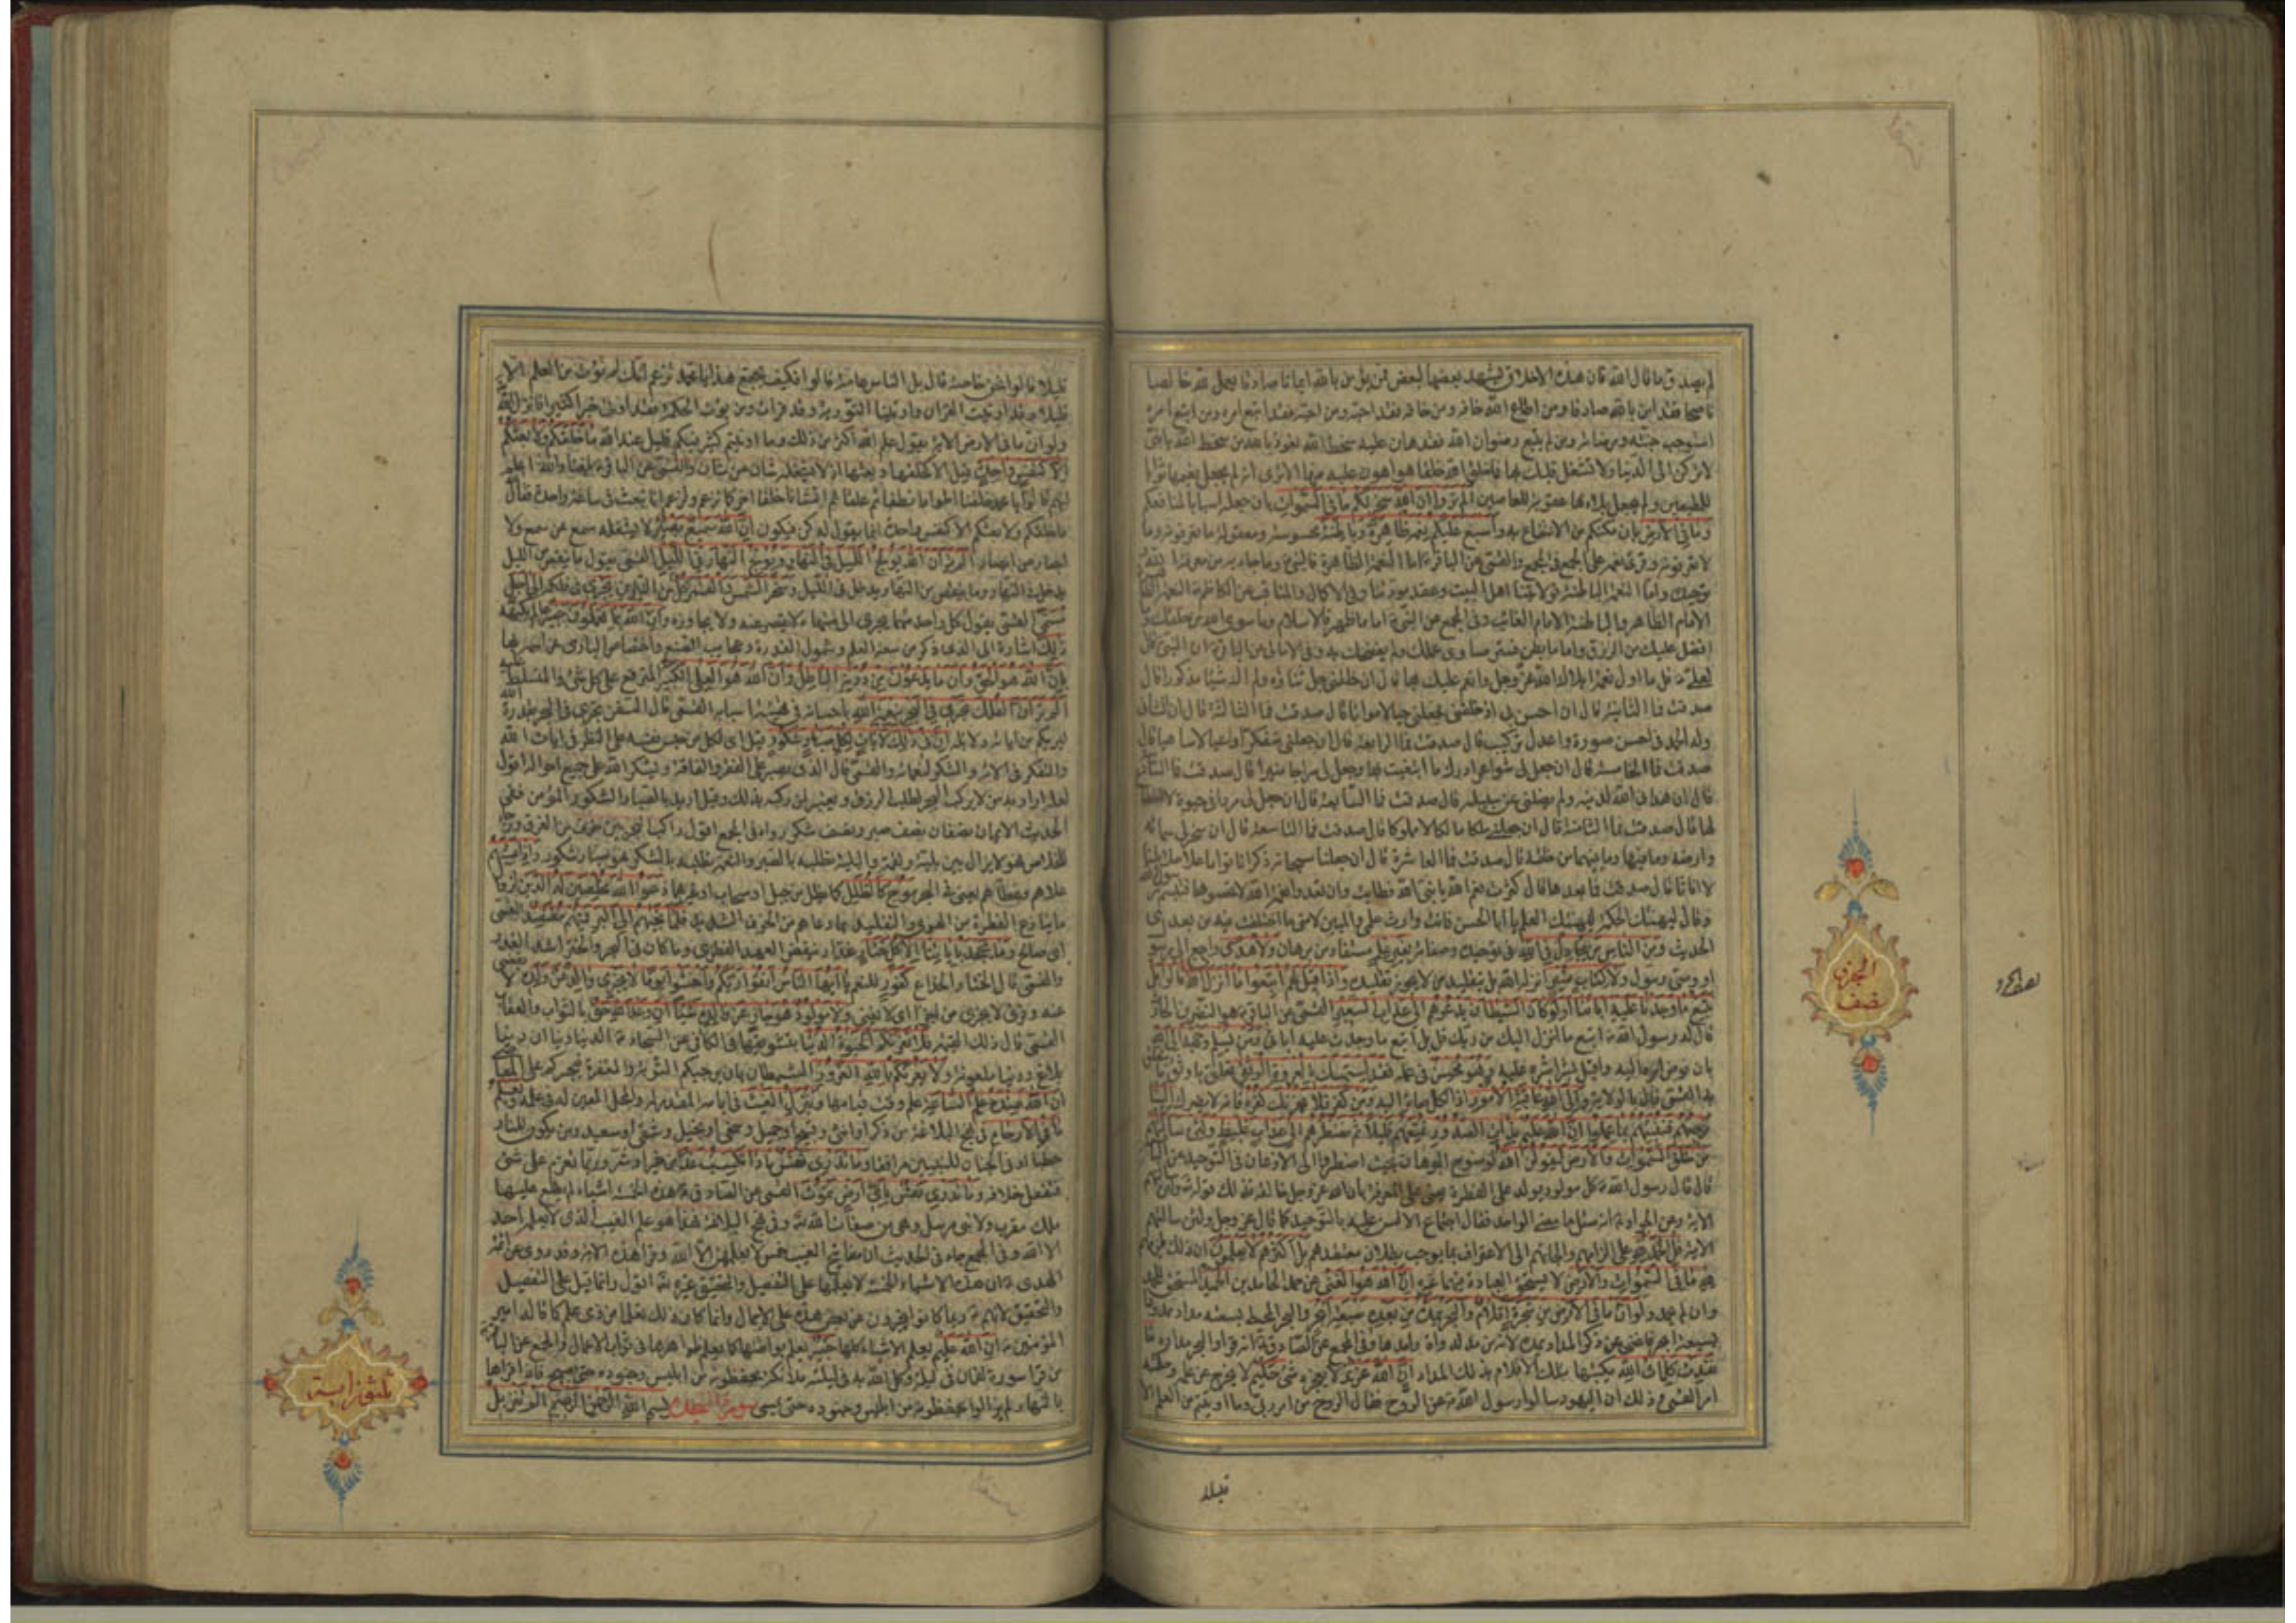 لم يصدق ما قال الله فان هذه الاخلاق يشهد بعضها لبعض فمن يؤمن بالله ايمانا صادقا يعمل لله خالصا
ناصحا فقد امن بالله صادقا ومن اطاع الله خافه ومن خافه فقد احبه ومن احبه فقد اتبع امره ومن اتبع امره
استوجب جنته ومرضاته ومن لم يتبع رضوان الله فقد هان عليه سخط الله نعوذ بالله من سخط الله يا بني
لا تركن الى الدنيا ولا تشغل قلبك بها فما خلق الله خلقا هو اهون عليه منها الا ترى انه لم يجعل نعيمها ثوابا
للمطيعين ولم يجعل بلاءها عقوبة للعاصين الم تروا ان الله سخر لكم ما في السموات بان جعله اسبابا لمنافعكم
وما في الارض بان مكنكم من الانتفاع به واسبغ عليكم نعمه ظاهرة وباطنة محسوسة ومعقولة ما تعرفونه وما
لا تعرفونه وقرئ نعمه على الجمع والقمي عن الباقر اما النعمة الظاهرة فالنبي وما جاء به من معرفة الله
توحيده واما النعمة الباطنة فولايتنا اهل البيت وعقد مودتنا وفي الاكمال والمناقب عن الكاظم النعمة الظاهرة
الامام الظاهر والباطنة الامام الغائب وفي المجمع عن النبي اما ما ظهر فالاسلام وما سوى الله من خلقك وما
افضل عليك من الرزق واما ما بطن فستر مساوى عملك ولم يفضحك به وفي الامالي عن الباقر ان النبي قال
لعلي قل ما اول نعمة ابلاك الله عز وجل وانعم عليك بها قال ان خلقني جل ثناؤه ولم اك شيئا مذكورا قال
صدقت فما الثانية قال ان احسن بي اذ خلقني فجعلني حيا لا مواتا قال صدقت فما الثالثة قال ان انشأني
وله الحمد في احسن صورة واعدل تركيب قال صدقت فما الرابعة قال ان جعلني متفكرا واعيا لا ساهيا قال
صدقت فما الخامسة قال ان جعل لي شواعر ادرك ما ابتغيت بها وجعل لي سراجا منيرا قال صدقت فما السادسة
قال ان هداني الله لدينه ولم يضلني عن سبيله قال صدقت فما السابعة قال ان جعل لي مردا في حيوة لا انقطاع
لها قال صدقت فما الثامنة قال ان جعلني ملكا مالكا لا مملوكا قال صدقت فما التاسعة قال ان سخر لي سمائه
وارضه وما فيهما وما بينهما من خلقه قال صدقت فما العاشرة قال ان جعلنا سبحانه ذكرانا قواما على حلائلنا
لا اناثا قال صدقت فما بعد هذا قال كثرت نعم الله يا نبي الله فطابت وان تعدوا نعمة الله لا تحصوها فتبسم رسول الله
وقال ليهنئك الحكمة ليهنئك العلم يا ابا الحسن فانت وارث علمي والمبين لامتي ما اختلفت فيه من بعدي
الحديث ومن الناس من يجادل في الله في توحيده وصفاته بغير علم مستفاد من برهان ولا هدى راجع الى رسول
او وصي رسول ولا كتاب منير انزله الله بل بتقليد من لا يجوز تقليده واذا قيل لهم اتبعوا ما انزل الله قالوا بل
نتبع ما وجدنا عليه اباءنا اولو كان الشيطان يدعوهم الى عذاب السعير القمي عن الباقر هو النضر بن الحارث
قال له رسول الله اتبع ما انزل اليك من ربك قال بل اتبع ما وجدت عليه ابائي ومن يسلم وجهه الى الله
بان فوض امره اليه واقبل بشراشره عليه وهو محسن في عمله فقد استمسك بالعروة الوثقى تعلق باوثق ما يتعلق
به القمي قال بالولاية والى الله عاقبة الامور اذ الكل صائر اليه ومن كفر فلا يحزنك كفره فانه لا يضرك الينا
مرجعهم فننبئهم بما عملوا ان الله عليم بذات الصدور نمتعهم قليلا ثم نضطرهم الى عذاب غليظ ولئن سألتهم
من خلق السموات والارض ليقولن الله لوضوح البرهان بحيث اضطروا الى الاذعان في التوحيد عن الباقر
قال قال رسول الله كل مولود يولد على الفطرة يعني على المعرفة بان الله عز وجل خالقه فذلك قوله ولئن سألتهم
الاية وعن الجواد انه سئل ما معنى الواحد فقال اجتماع الالسن عليه بالتوحيد كما قال عز وجل ولئن سألتهم
الاية قل الحمد لله على الزامهم والجائهم الى الاعتراف بما يوجب بطلان معتقدهم بل اكثرهم لا يعلمون ان ذلك يلزمهم
لله ما في السموات والارض لا يستحق العبادة فيهما غيره ان الله هو الغني عن حمد الحامدين الحميد المستحق للحمد
وان لم يحمد ولو ان ما في الارض من شجرة اقلام والبحر يمده من بعده سبعة ابحر والبحر المحيط بسعته مداد ممدودا
بسبعة ابحر فاغنى عن ذكر المداد يمده لانه من مد الدواة وامدها وفي المجمع عن الصادق انه قرا والبحر مداده ما
نفدت كلمات الله بكتبها بتلك الاقلام بذلك المداد ان الله عزيز لا يعجزه شئ حكيم لا يخرج عن علمه وحكمته
امر القمي وذلك ان اليهود سالوا رسول الله عن الروح فقال الروح من امر ربي وما اوتيتم من العلم الا
قليلا
الجزو
نصف
قليلا قالوا نحن خاصة قال بل الناس عامة قالوا فكيف يجتمع هذا يا محمد تزعم انك لم تؤت من العلم الا
قليلا وقد اوتيت القران واوتينا التورية وقد قرات ومن يؤت الحكمة فقد اوتي خيرا كثيرا فانزل الله
ولو ان ما في الارض الاية يقول علم الله اكثر من ذلك وما اوتيتم كثير فيكم قليل عند الله ما خلقكم ولا بعثكم
الا كنفس واحدة قيل الا كخلقها وبعثها اذ لا يشغله شان عن شان والقمي عن الباقر بلغنا والله اعلم
انهم قالوا يا محمد خلقنا اطوارا نطفا ثم علقا ثم انشأنا خلقا اخر كما تزعم وتزعم انا نبعث في ساعة واحدة فقال الله
ما خلقكم ولا بعثكم الا كنفس واحدة انما يقول له كن فيكون ان الله سميع بصير لا يشغله سمع عن سمع ولا
ابصار عن ابصار الم تر ان الله يولج الليل في النهار ويولج النهار في الليل القمي يقول ما ينقص من الليل
يدخل في النهار وما ينقص من النهار يدخل في الليل وسخر الشمس والقمر كل من النيرين يجري في فلكه الى اجل
مسمى القمي يقول كل واحد منهما يجري الى منتهاه لا يقصر عنه ولا يجاوزه وان الله بما تعملون خبير عالم بكنهه
ذلك اشارة الى الذي ذكر من سعة العلم وشمول القدرة وعجايب الصنع واختصاص الباري عز اسمه بها
بان الله هو الحق وان ما يدعون من دونه الباطل وان الله هو العلي الكبير المترفع على كل شئ والمتسلط عليه
الم تر ان الفلك تجري في البحر بنعمة الله باحسانه في تهيئة اسبابه القمي قال السفن تجري في البحر بقدرة الله
ليريكم من اياته دلائله ان في ذلك لايات لكل صبار شكور قيل اي لكل من حبس نفسه على النظر في ايات الله
والتفكر في الائه والشكر لنعمائه والقمي قال الذي يصبر على الفقر والفاقة ويشكر الله على جميع احواله اقول
لعله اراد به من لا يركب البحر لطلب الرزق ويعتبر بمن ركبه بذلك وقيل اريد بالصبار الشكور المؤمن ففي
الحديث الايمان نصفان نصف صبر ونصف شكر رواه في المجمع اقول راكب البحر بين خوف من الغرق ورجاء
للخلاص فهو لا يزال بين بلية ونعمة والبلية تطلبه بالصبر والنعمة تطلبه بالشكر فهو صبار شكور واذا غشيهم
علاهم وغطاهم يعني في البحر موج كالظلل كما يظل من جبل او سحاب او غيرهما دعوا الله مخلصين له الدين لزوال
ما ينازع الفطرة من الهوى والتقليد بما دهاهم من الخوف الشديد فلما نجاهم الى البر فمنهم مقتصد القمي
اي صالح وما يجحد باياتنا الا كل ختار غدار ينقض العهد الفطري وما كان في البحر والختر اشد الغدر
والقمي قال الختار الخداع كفور للنعم يا ايها الناس اتقوا ربكم واخشوا يوما لا يجزي والد عن ولده لا يقضي
عنه وقرئ لا يجزئ من اجزأ اي لا يغني ولا مولود هو جاز عن والده شيئا ان وعد الله حق بالثواب والعقاب
القمي قال ذلك القيمة فلا تغرنكم الحيوة الدنيا
بلاغ ودنيا ملعونة ولا يغرنكم بالله الغرور الشيطان بان يرجيكم التوبة والمغفرة فيجسركم على المعاصي
ان الله عنده علم الساعة علم وقت قيامها وينزل الغيث في ابانه المقدر له والمحل المعين له في علمه ويعلم
ما في الارحام في نهج البلاغة من ذكر او انثى وقبيح او جميل وسخي او بخيل وشقي او سعيد ومن يكون للنار
حطبا او في الجنان للنبيين مرافقا وما تدري نفس ماذا تكسب غدا من خير او شر وربما تعزم على شئ
فتفعل خلافه وما تدري نفس باي ارض تموت القمي عن الصادق هذه الخمسة اشياء لم يطلع عليها
ملك مقرب ولا نبي مرسل وهي من صفات الله وفي نهج البلاغة فهذا هو علم الغيب الذي لا يعلمه احد
الا الله وفي المجمع جاء في الحديث ان مفاتيح الغيب خمس لا يعلمهن الا الله وقرا هذه الاية وقد روى عن ائمة
الهدى ان هذه الاشياء الخمسة لا يعلمها على التفصيل والتحقيق غيره اقول وانما قيل على التفصيل
والتحقيق لانهم ربما كانوا يخبرون عن بعض هذه على الاجمال وانما كان ذلك تعلما من ذي علم كما قاله امير
المؤمنين ان الله عليم يعلم الاشياء كلها خبير يعلم بواطنها كما يعلم ظواهرها في ثواب الاعمال والمجمع عن الباقر
من قرا سورة لقمان في ليلة وكل الله به في ليلته ملائكة يحفظونه من ابليس وجنوده حتى يصبح فاذا قراها
بالنهار لم يزالوا يحفظونه من ابليس وجنوده حتى يمسي سورة السجدة بسم الله الرحمن الرحيم الم تنزيل